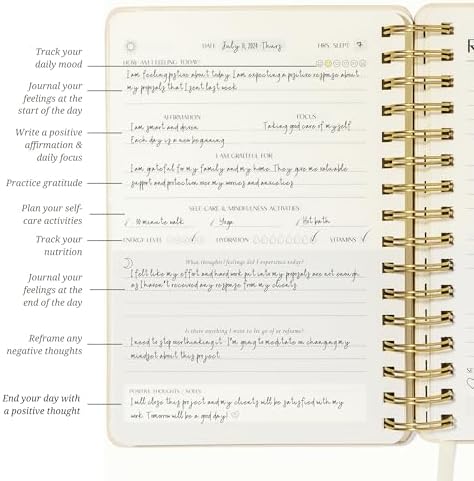 Track your
daily mood
Journal your
feelings at the
start of the day
Write a positive
affirmation &
daily focus
Practice gratitude
Plan your self-
care activities
Track your
nutrition
Journal your
feelings at the
end of the day
Reframe any
negative thoughts
End your day with
a positive thought
DATE July 11, 2024 Thurs HRS. SLEPT 7
HOW AM I FEELING TODAY?
I am feeling positive about today. I am expecting a positive response about
my proposals that I sent last week.
AFFIRMATION FOCUS
I am smart and driven. Taking good care of myself
Each day is a new beginning
I AM GRATEFUL FOR
I am grateful for my family and my home. They give me valuable
support and protection over my worries and anxieties.
SELF-CARE & MINDFULNESS ACTIVITIES
10 minute walk Yoga Hot bath
ENERGY LEVEL HYDRATION VITAMINS
What thoughts/feelings did I experience today?
I felt like my effort and hard work put into my proposals are not enough
as I haven't received any response from my clients.
Is there anything I want to let go of or reframe?
I need to stop overthinking it. I'm going to meditate on changing my
mindset about this project.
POSITIVE THOUGHTS / NOTES
I will close this project and my clients will be satisfied with my
work. Tomorrow will be a good day!